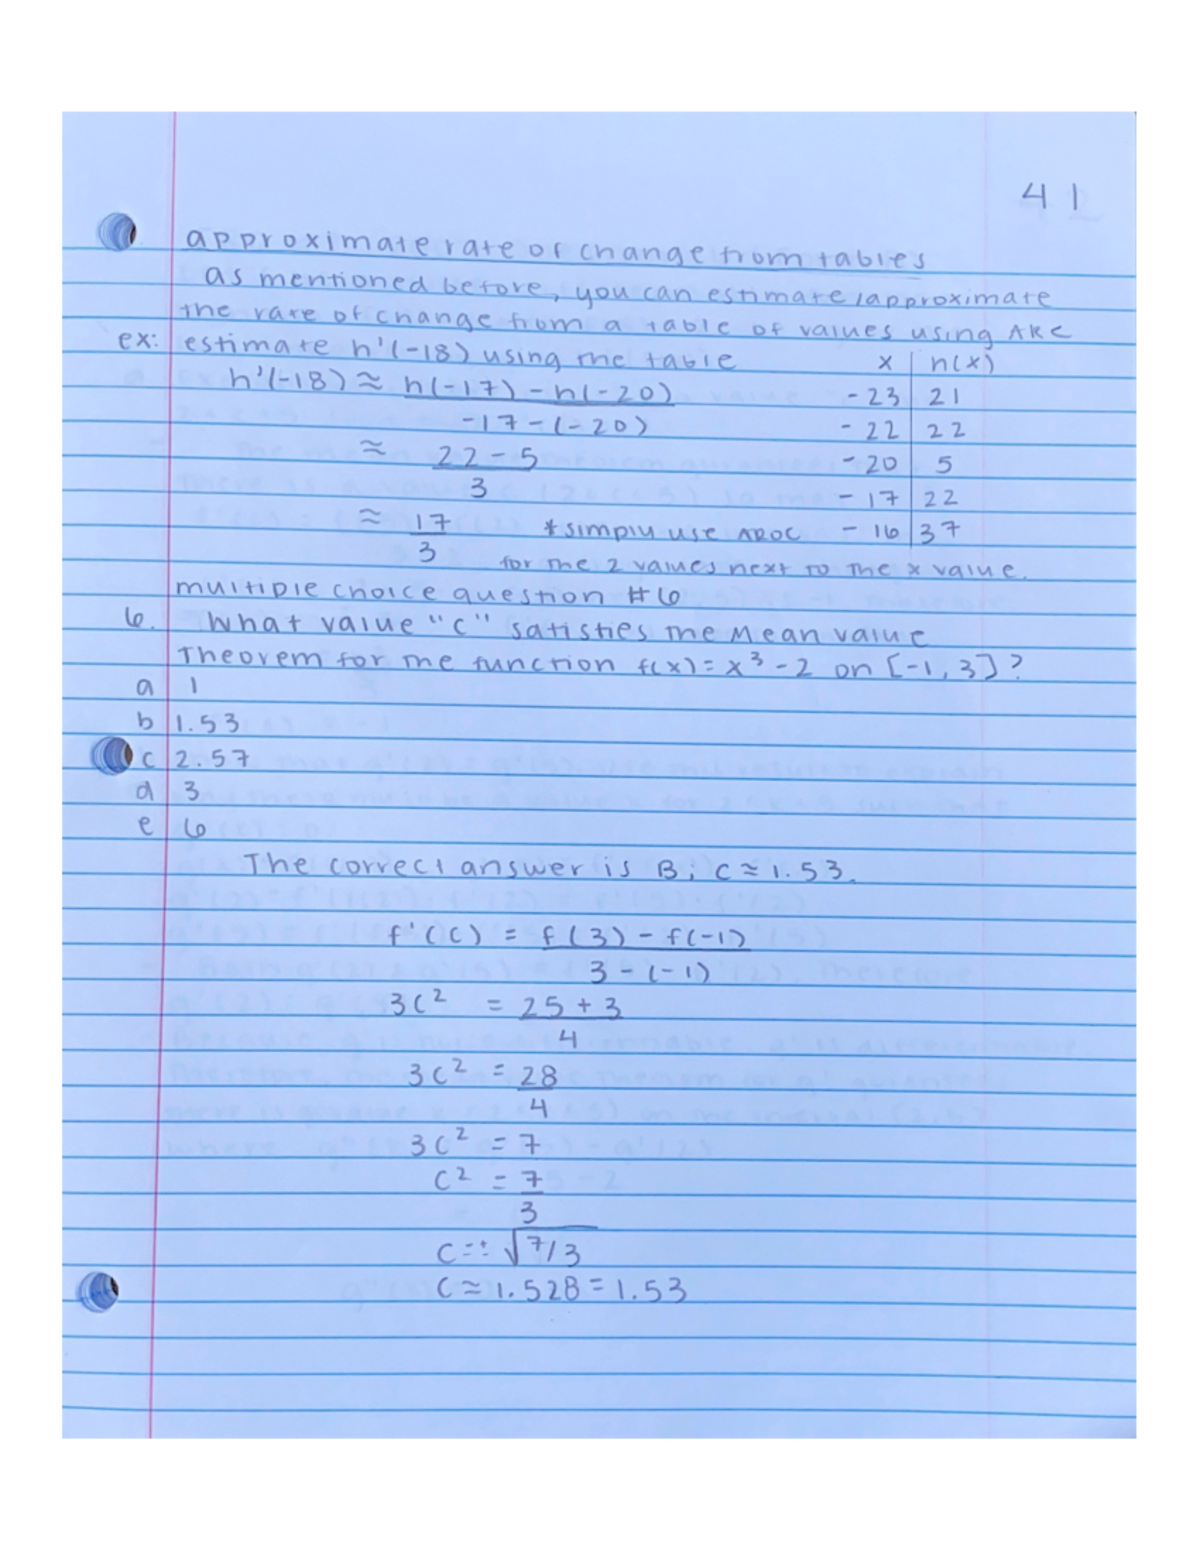 41
approximate rate of change from tables
as mentioned before, you can estimate/approximate
the rate of change from a table of values using ARC
ex: estimate h'(-18) using the table
x | h(x)
-23 | 21
-22 | 22
-20 | 5
-17 | 22
-16 | 37
h'(-18) ≈ h(-17) - h(-20)
-17-(-20)
≈ 22-5
3
≈ 17
3
*simply use AROC
for the 2 values next to the x value.
multiple choice question #6
6. What value "c" satisfies the Mean Value
Theorem for the function f(x) = x³ - 2 on [-1, 3]?
a 1
b 1.53
c 2.57
d 3
e 6
The correct answer is B; c ≈ 1.53.
f'(c) = f(3) - f(-1)
3-(-1)
3c² = 25 + 3
4
3c² = 28
4
3c² = 7
c² = 7
3
c = ± √7/3
c ≈ 1.528 = 1.53